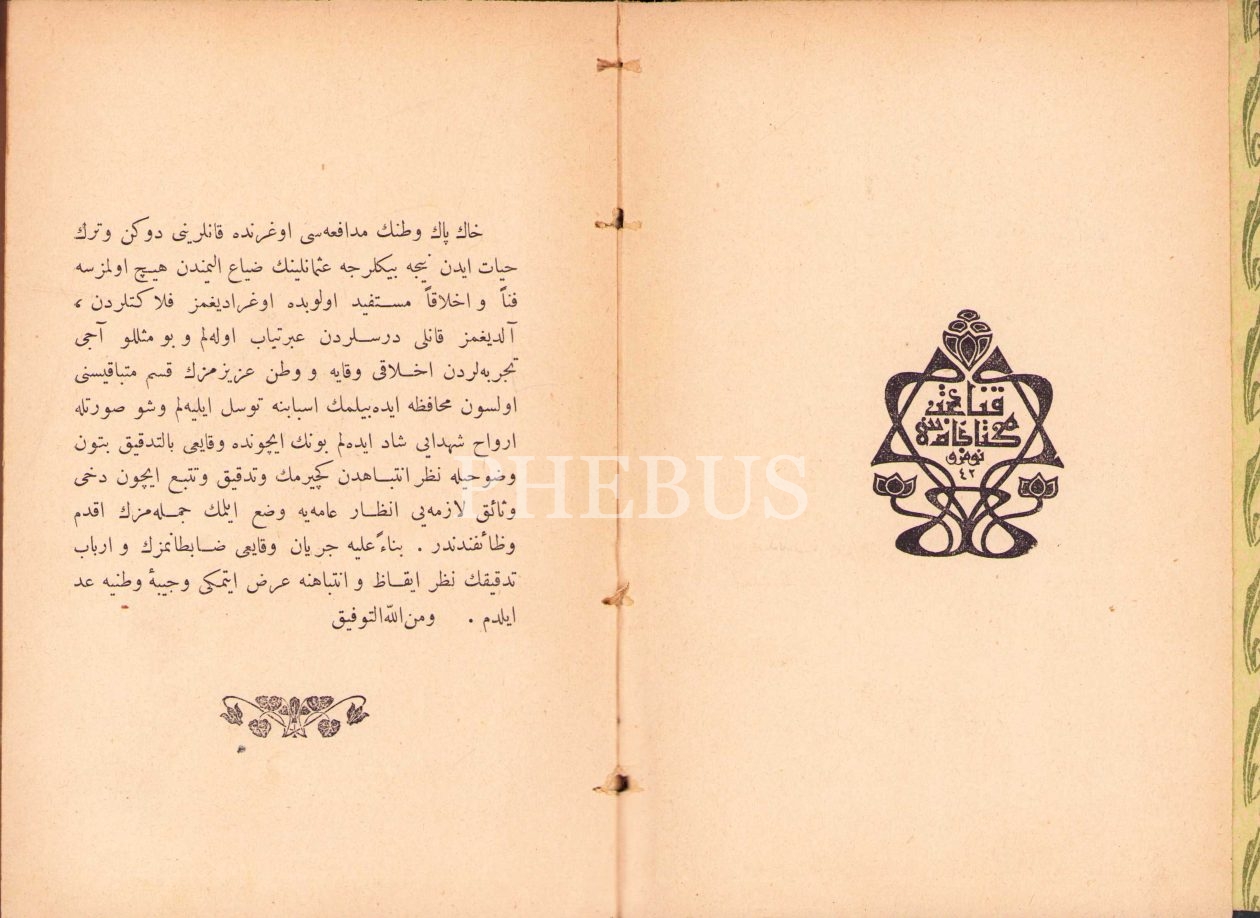 قناعت
كتابخانه‌سی
نومرو
٤٢
خاك پاك وطنك مدافعه‌سی اوغرنده قانلرینی دوكن وترك
حیات ایدن نیجه بیكلرجه عثمانلینك ضیاع الیمندن هیچ اولمزسه
فناً و اخلاقاً مستفید اولوبده اوغرادیغمز فلاكتلردن ،
آلدیغمز قانلی درسلردن عبرتیاب اوله‌لم و بو مثللو آجی
تجربه‌لردن اخلاقی وقایه و وطن عزیزمزك قسم متباقیسنی
اولسون محافظه ایده‌بیلمك اسبابنه توسل ایلیه‌لم وشو صورتله
ارواح شهدایی شاد ایده‌لم بونك ایچونده وقایعی بالتدقیق بتون
وضوحیله نظر انتباهدن كچیرمك وتدقیق وتتبع ایچون دخی
وثائق لازمه‌یی انظار عامه‌یه وضع ایلك جمله‌مزك اقدم
وظائفندندر . بناءً علیه جریان وقایعی ضابطانمزك و ارباب
تدقیقك نظر ایقاظ و انتباهنه عرض ایتمكی وجیبهٔ وطنیه عد
ایلدم . ومن‌الله‌التوفیق
PHEBUS